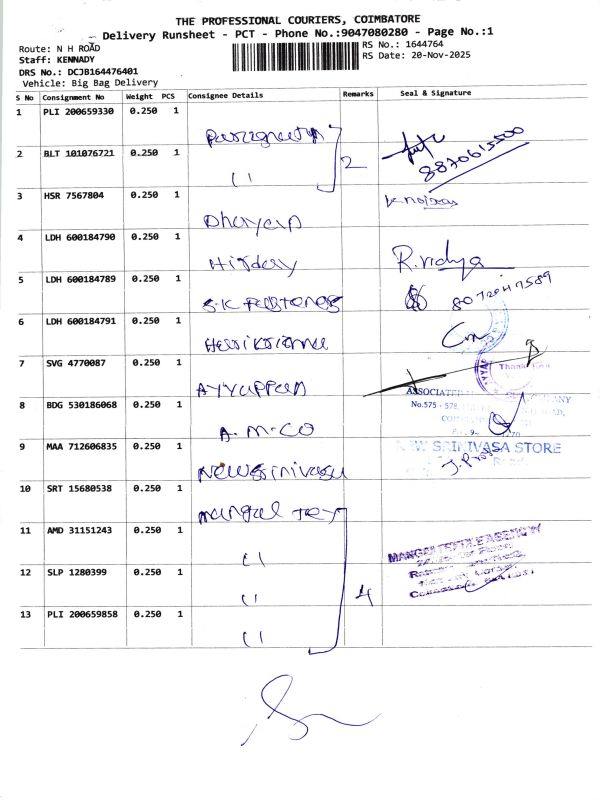 THE PROFESSIONAL COURIERS, COIMBATORE
Delivery Runsheet - PCT - Phone No.:9047080280 - Page No.:1
Route: N H ROAD
RS No.: 1644764
Staff: KENNADY
RS Date: 20-Nov-2025
DRS No.: DCJB164476401
Vehicle: Big Bag Delivery
S No Consignment No Weight PCS Consignee Details Remarks Seal & Signature
1 PLI 200659330 0.250 1
2 BLT 101076721 0.250 1 " 2 8870615500
3 HSR 7567804 0.250 1 Dhayan
4 LDH 600184790 0.250 1 Hiday R.vidya
5 LDH 600184789 0.250 1 S.K 8072047589
6 LDH 600184791 0.250 1
7 SVG 4770087 0.250 1 AYYappan
8 BDG 530186068 0.250 1 A.M.CO
ASSOCIATED
No.575 - 578,
9 MAA 712606835 0.250 1 Newsrinivasu
NEW SRINIVASA STORE
10 SRT 15680538 0.250 1 mangal Tex
11 AMD 31151243 0.250 1 "
12 SLP 1280399 0.250 1 " 4
13 PLI 200659858 0.250 1 "